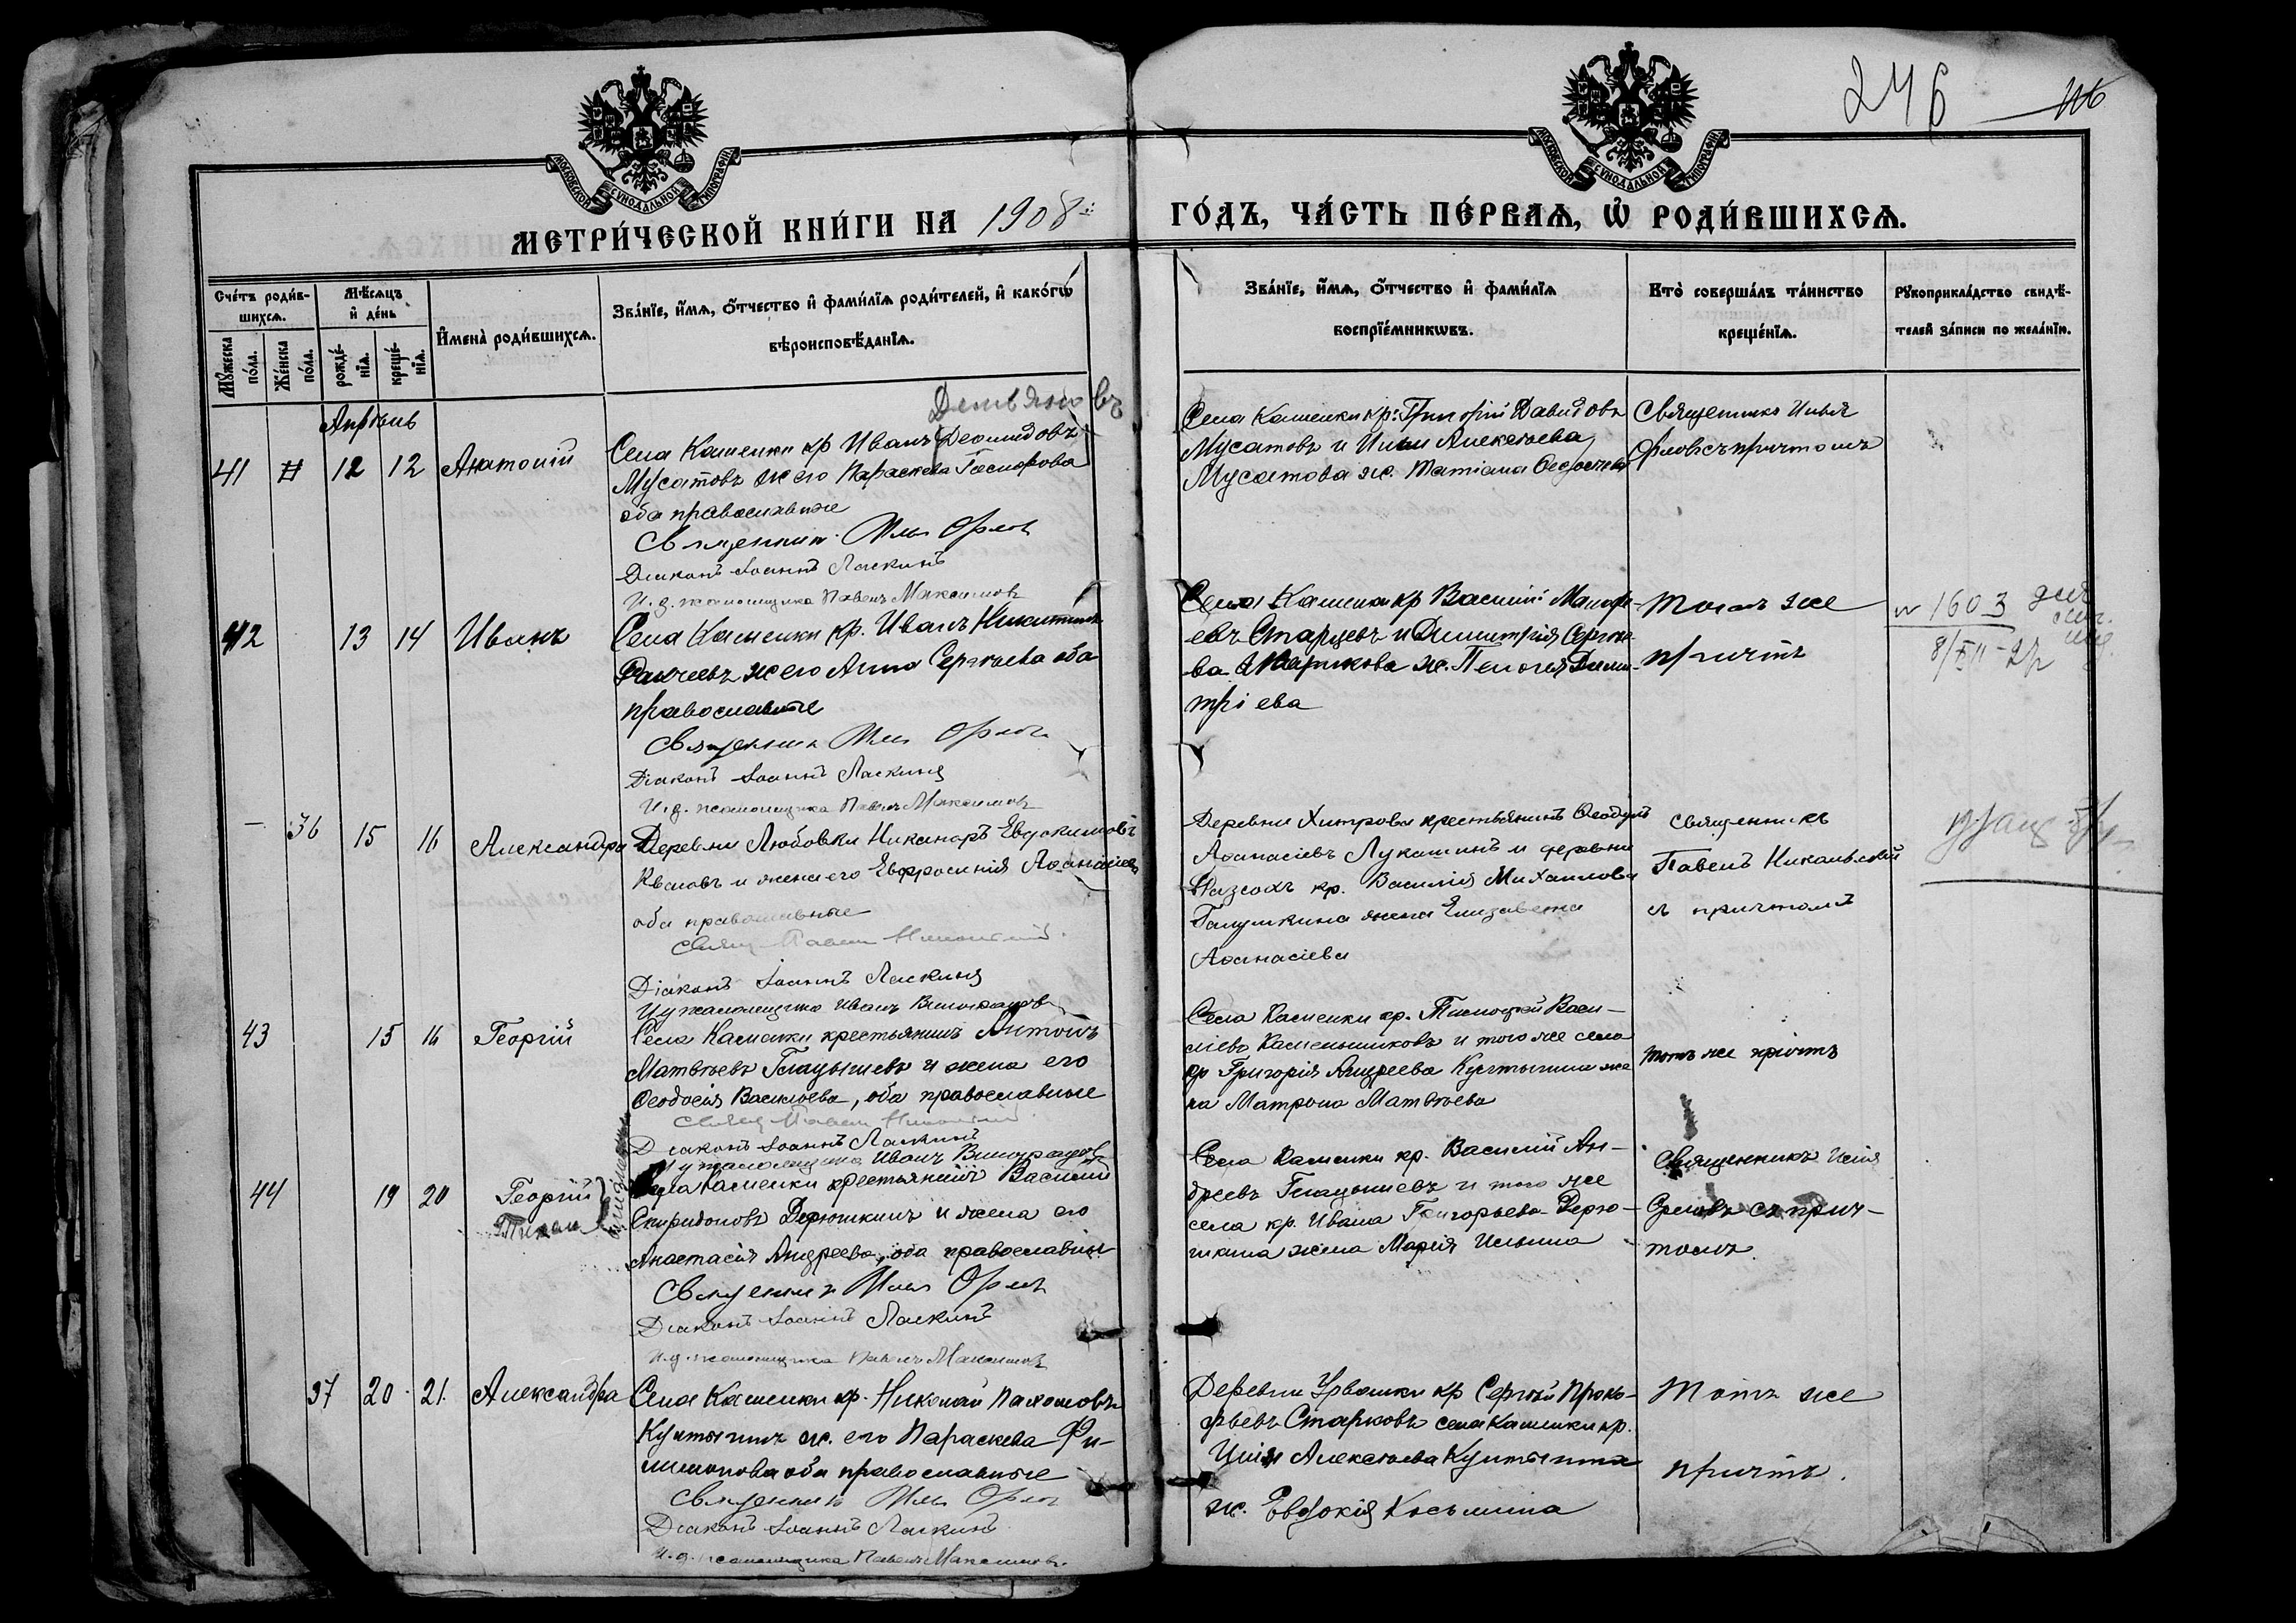 246
116
МОСКОВСКОЙ СѴНОДАЛЬНОЙ ТИПОГРАФІИ
МОСКОВСКОЙ СѴНОДАЛЬНОЙ ТИПОГРАФІИ
МЕТРИ́ЧЕСКОЙ КНИ́ГИ НА 1908
ГО́ДЪ, ЧА́СТЬ ПЕ́РВАѦ, Ѿ РОДИ́ВШИХСѦ.
Сче́тъ роди́в-
шихсѧ.
Мꙋ́жеска по́ла.
Же́нска по́ла.
Мѣ́сѧцъ и҆ де́нь
рожде́-
нїѧ.
креще́-
нїѧ.
И҆мена̀ роди́вшихсѧ.
Зва́нїе, и҆́мѧ, ѻ҆́тчество и҆ фами́лїѧ роди́телей, и҆ како́гѡ
вѣроисповѣ́данїѧ.
Зва́нїе, и҆́мѧ, ѻ҆́тчество и҆ фами́лїѧ
воспрїе́мникѡвъ.
Кто̀ соверша́лъ та́инство
креще́нїѧ.
Рꙋкоприкла́дство свидѣ́-
телей за́писи по жела́нїю.
Апрѣль
41 12 12 Анатолій
Села Каменки кр Иванъ
Мусатовъ ж его Параскева
оба православные
Священникъ Илья Орловъ
Діаконъ Іоаннъ Ласкинъ
И.д. псаломщика Павелъ Максимовъ
Села Каменки кр: Григорій Давидовъ
Мусатовъ и Ильи Алексѣева
Мусатова ж. Татіана
Священникъ Илья
Орловъ съ причтомъ
42 13 14 Иванъ
Села Каменки кр. Иванъ Никитинъ
ж его Анна Сергѣева оба
православные
Священникъ Илья Орловъ
Діаконъ Іоаннъ Ласкинъ
И.д. псаломщика Павелъ Максимовъ
Села Каменки кр Василій
евъ Старцевъ и Димитрія Сергѣе-
ва ж. Пелагея Дими-
тріева
Тотъ же
причтъ
№ 1603
36 15 16 Александра
Деревни Любовки Никаноръ Евдокимовъ
и жена его Евфросинія Аѳанасіева
оба православные
Свящ. Павелъ Никольскій
Діаконъ Іоаннъ Ласкинъ
псаломщика Иванъ Виноградовъ
Деревни Хитровки крестьянинъ Ѳеодулъ
Аѳанасіевъ Лукашинъ и деревни
кр. Василія Михаилова
Галушкина жена Елизавета
Аѳанасіева
Священникъ
Павелъ Никольскій
съ причтомъ
43 15 16 Георгій
Села Каменки крестьянинъ Антонъ
Матвѣевъ Гладышевъ и жена его
Ѳеодосія Васильева, оба православные
Свящ. Павелъ Никольскій
Діаконъ Іоаннъ Ласкинъ
псаломщика Иванъ Виноградовъ
Села Каменки кр. Тимоѳей Васи-
ліевъ Каменьщиковъ и того же села
кр Григорія Андреева Култыгина же
на Матрона Матвѣева
Тотъ же причтъ
44 19 20 Георгій
Тихон
близнецы
Села Каменки крестьянинъ Василій
Спиридоновъ Дерюшкинъ и жена его
Анастасія Андреева, оба православные
Священникъ Илья Орловъ
Діаконъ Іоаннъ Ласкинъ
И.д. псаломщика Павелъ Максимовъ
Села Каменки кр. Василій Ан-
дреевъ Гладышевъ и того же
села кр. Ивана Григорьева Дерю-
шкина жена Марія Ильина
Священникъ Илія
Орловъ съ прич-
томъ.
37 20 21. Александра
Села Каменки кр. Николай Пахомовъ
Култыгинъ ж. его Параскева Фи-
лимонова оба православные
Священникъ Илья Орловъ
Діаконъ Іоаннъ Ласкинъ
И.д. псаломщика Павелъ Максимовъ.
Деревни Урвашки кр Сергѣй Проко-
фьевъ Старковъ села Каменки кр.
Иліи Алексѣева Култыгина
ж. Евдокія Косьмина
Тотъ же
причтъ.